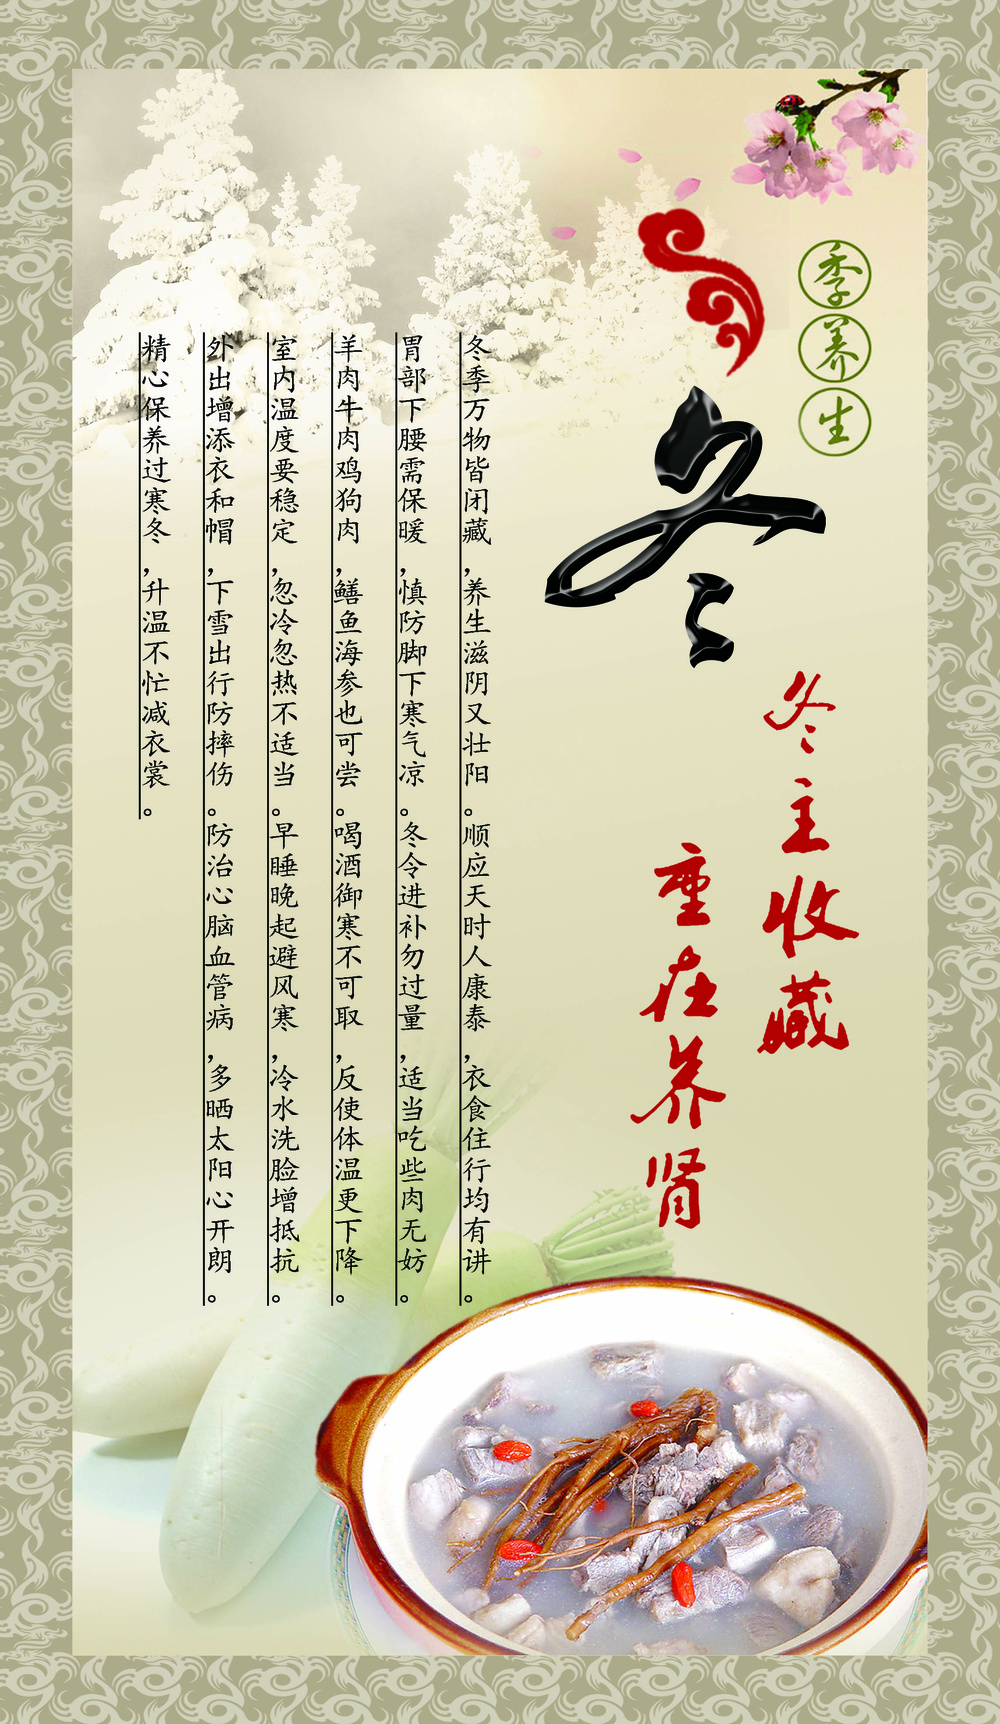 季养生
冬
冬主收藏
重在养肾
冬季万物皆闭藏，养生滋阴又壮阳。顺应天时人康泰，衣食住行均有讲。
胃部下腰需保暖，慎防脚下寒气凉。冬令进补勿过量，适当吃些肉无妨。
羊肉牛肉鸡狗肉，鳝鱼海参也可尝。喝酒御寒不可取，反使体温更下降。
室内温度要稳定，忽冷忽热不适当。早睡晚起避风寒，冷水洗脸增抵抗。
外出增添衣和帽，下雪出行防摔伤。防治心脑血管病，多晒太阳心开朗。
精心保养过寒冬，升温不忙减衣裳。